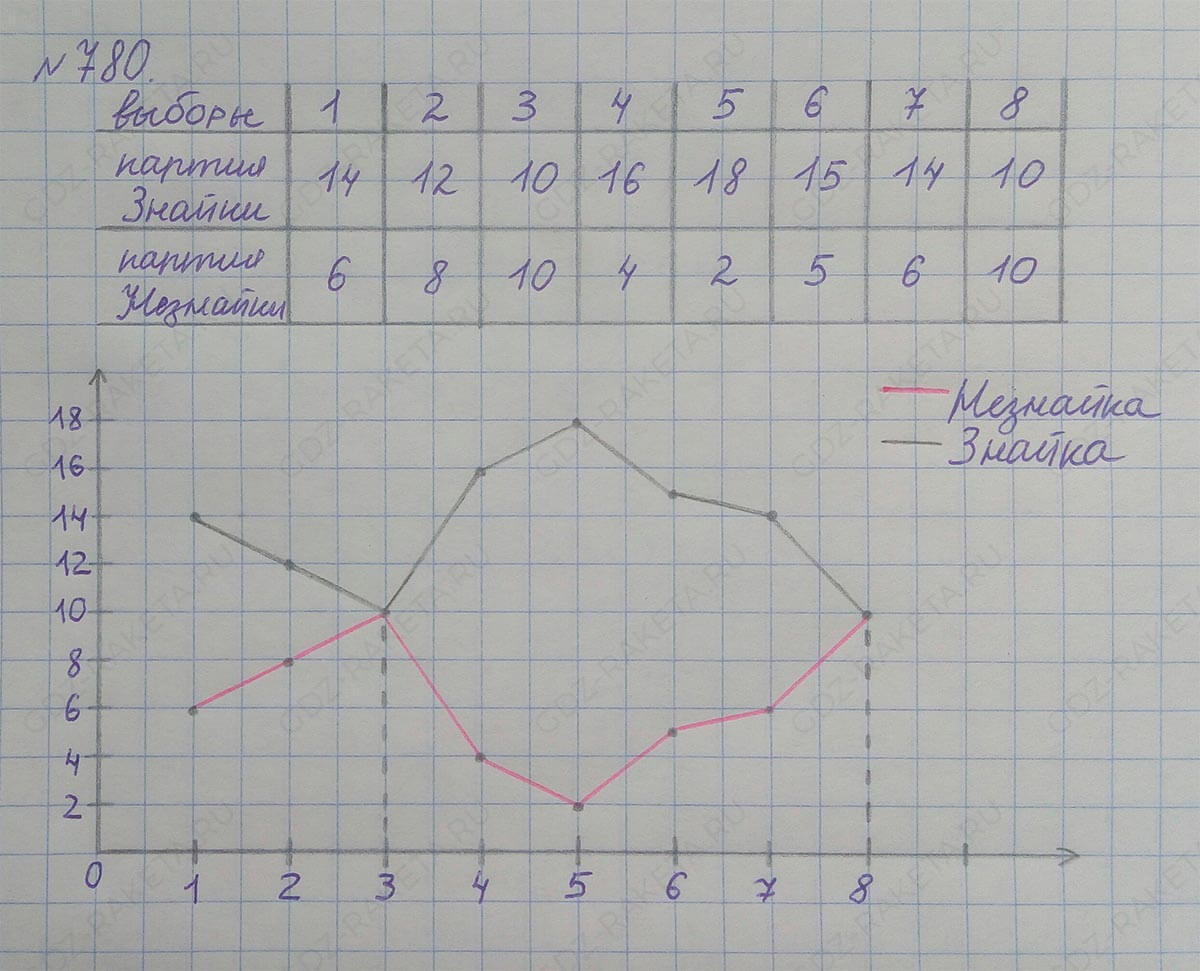 №780.
выборы 1 2 3 4 5 6 7 8
партия
Знайки 14 12 10 16 18 15 14 10
партия
Незнайки 6 8 10 4 2 5 6 10
Незнайка
Знайка
18
16
14
12
10
8
6
4
2
0 1 2 3 4 5 6 7 8
GDZ-RAKETA.RU